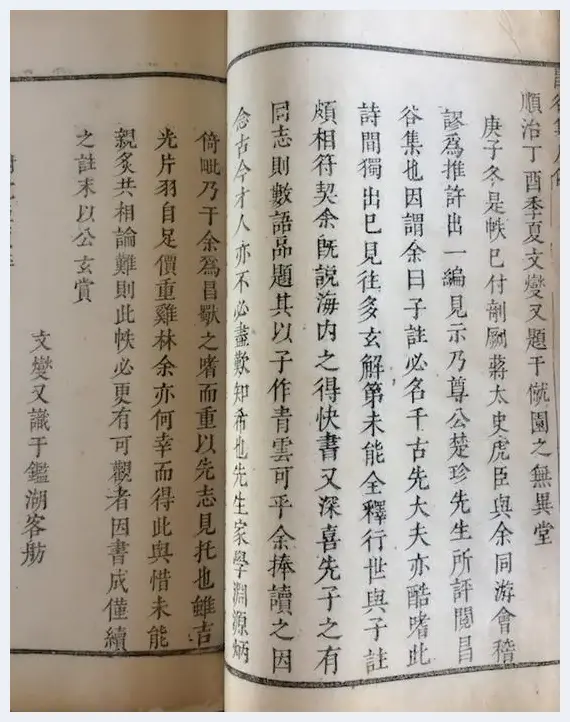 順治丁酉季夏文燮又題于僦園之無異堂
庚子冬是帙已付剞劂蔣太史虎臣與余同游會稽
謬為推許出一編見示乃尊公楚珍先生所評閱昌
谷集也因謂余曰子註必名千古先大夫亦酷嗜此
詩間獨出已見往多玄解第未能全釋行世與子註
頗相符契余既說海内之得快書又深喜先子之有
同志則數語品題其以子作青雲可乎余捧讀之因
念古今才人亦不必盡歎知希也先生家學淵源炳
倚毗乃于余為昌歜之嗜而重以先志見托也雖吉
光片羽自足價重雞林余亦何幸而得此與惜未能
親炙共相論難則此帙必更有可觀者因書成僅續
之註末以公玄賞
文燮又識于鑑湖客舫